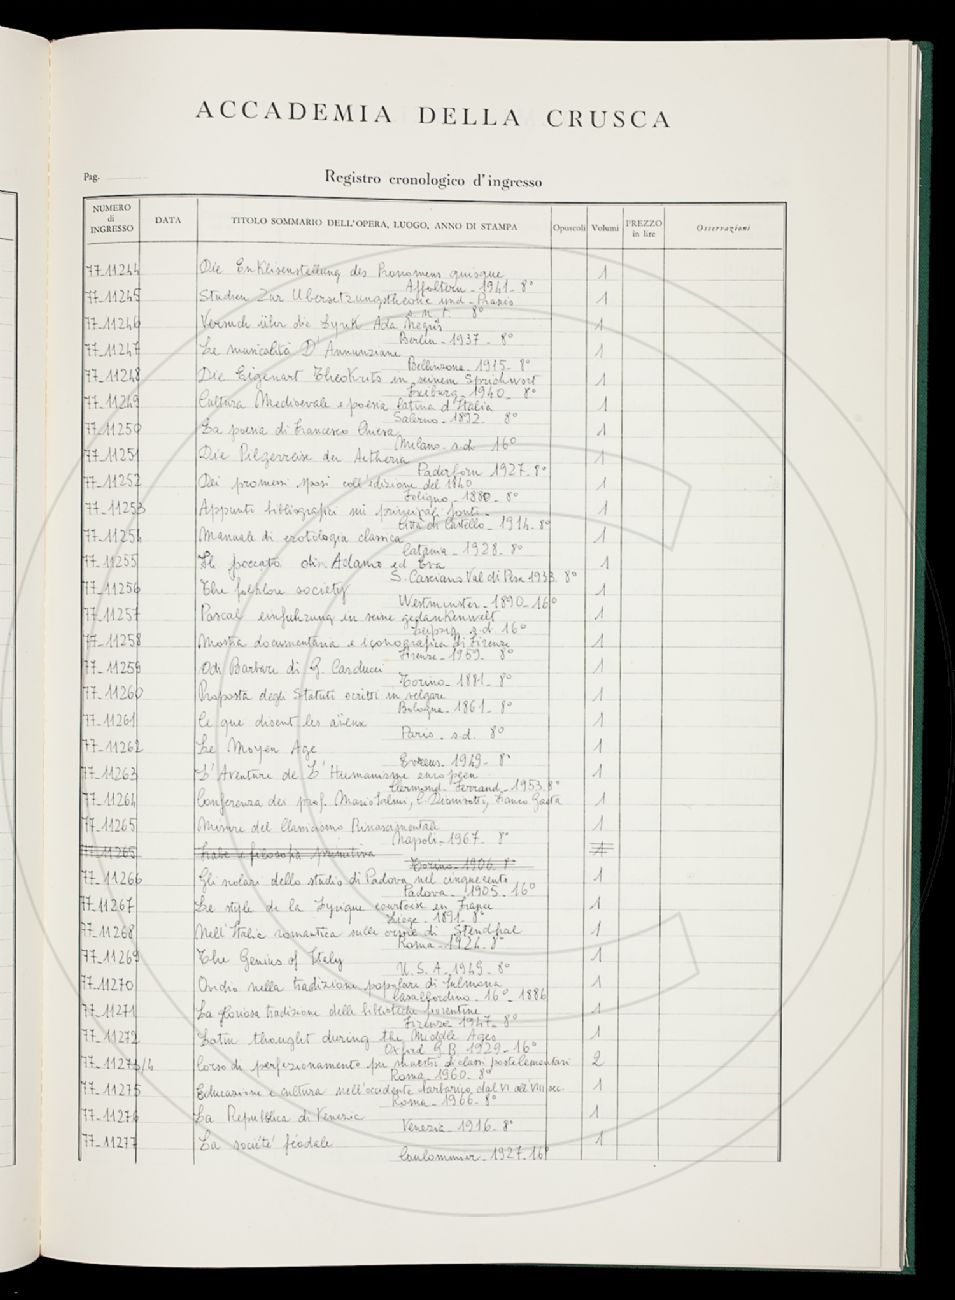 ACCADEMIA DELLA CRUSCA
Pag.
Registro cronologico d'ingresso
NUMERO di INGRESSO DATA TITOLO SOMMARIO DELL'OPERA, LUOGO, ANNO DI STAMPA Opuscoli Volumi PREZZO in lire Osservazioni
77-11244 Die Enklisenstellung des Pronomens quisque 1
Affoltern - 1941 - 8°
77-11245 Studien Zur Ubersetzungstheorie und - Praxis 1
s. n. t. 8°
77-11246 Versuch über die Lyrik Ada Negris 1
Berlin - 1937 - 8°
77-11247 Le musicalità D'Annunziane 1
Bellinzona - 1915 - 8°
77-11248 Die Eigenart Theokrits in seinem Sprichwort 1
Freiburg - 1940 - 8°
77-11249 Cultura Medioevale e poesia latina d'Italia 1
Salerno - 1892 - 8°
77-11250 La poesia di Francesco Chiesa 1
Milano - s.d. 16°
77-11251 Die Pilgerreise der Aetheria 1
Paderborn 1927 - 8°
77-11252 Dei promessi sposi coll'edizione del 1840 1
Foligno - 1880 - 8°
77-11253 Appunti bibliografici sui principali fonti - 1
Città di Castello - 1914 - 8°
77-11254 Manuale di erotologia classica 1
Catania - 1928 - 8°
77-11255 Il peccato di Adamo ed Eva 1
S. Casciano Val di Pesa 1933 8°
77-11256 The folklore society 1
Westminster - 1890 - 16°
77-11257 Pascal einfuhrung in seine gedankenwelt 1
Leipzig s.d. 16°
77-11258 Mostra documentaria e iconografica di Firenze 1
Firenze - 1959 - 8°
77-11259 Odi Barbare di G. Carducci 1
Torino - 1881 - 8°
77-11260 Proposta degli Statuti scritti in volgare 1
Bologna - 1861 - 8°
77-11261 Ce que disent les aïeux 1
Paris - s.d. 8°
77-11262 Le Moyen Age 1
Evreux - 1949 - 8°
77-11263 L'Aventure de L'Humanisme européen 1
Clermond - Ferrand - 1953 8°
77-11264 Conferenza dei prof. Mario Salmi, Franco Gaeta 1
77-11265 Misure del Classicismo Rinascimentale 1
Napoli - 1967 - 8°
77-11265 Fiabe e filosofia primitiva 1
Torino - 1906 - 8°
77-11266 Gli scolari dello studio di Padova nel cinquecento 1
Padova - 1905 - 16°
77-11267 Le style de la Lyrique courtoise en France 1
Liege - 1891 - 8°
77-11268 Nell'Italia romantica sulle orme di Stendhal 1
Roma - 1924 - 8°
77-11269 The Genius of Italy 1
U. S. A. - 1949 - 8°
77-11270 Ovidio nella tradizione popolare di Sulmona 1
Casalbordino - 16° - 1886
77-11271 La gloriosa tradizione delle biblioteche fiorentine 1
Firenze 1947 - 8°
77-11272 Latin thought during the Middle Ages 1
Oxford G.B. 1929 - 16°
77-11273/4 Corso di perfezionamento per maestri di classi postelementari 2
Roma - 1960 - 8°
77-11275 Educazione e cultura nell'occidente barbarico dal VI all'VIII sec. 1
Roma - 1966 - 8°
77-11276 La Repubblica di Venezia 1
Venezia - 1916 - 8°
77-11277 La société féodale 1
Coulommier - 1927 - 16°